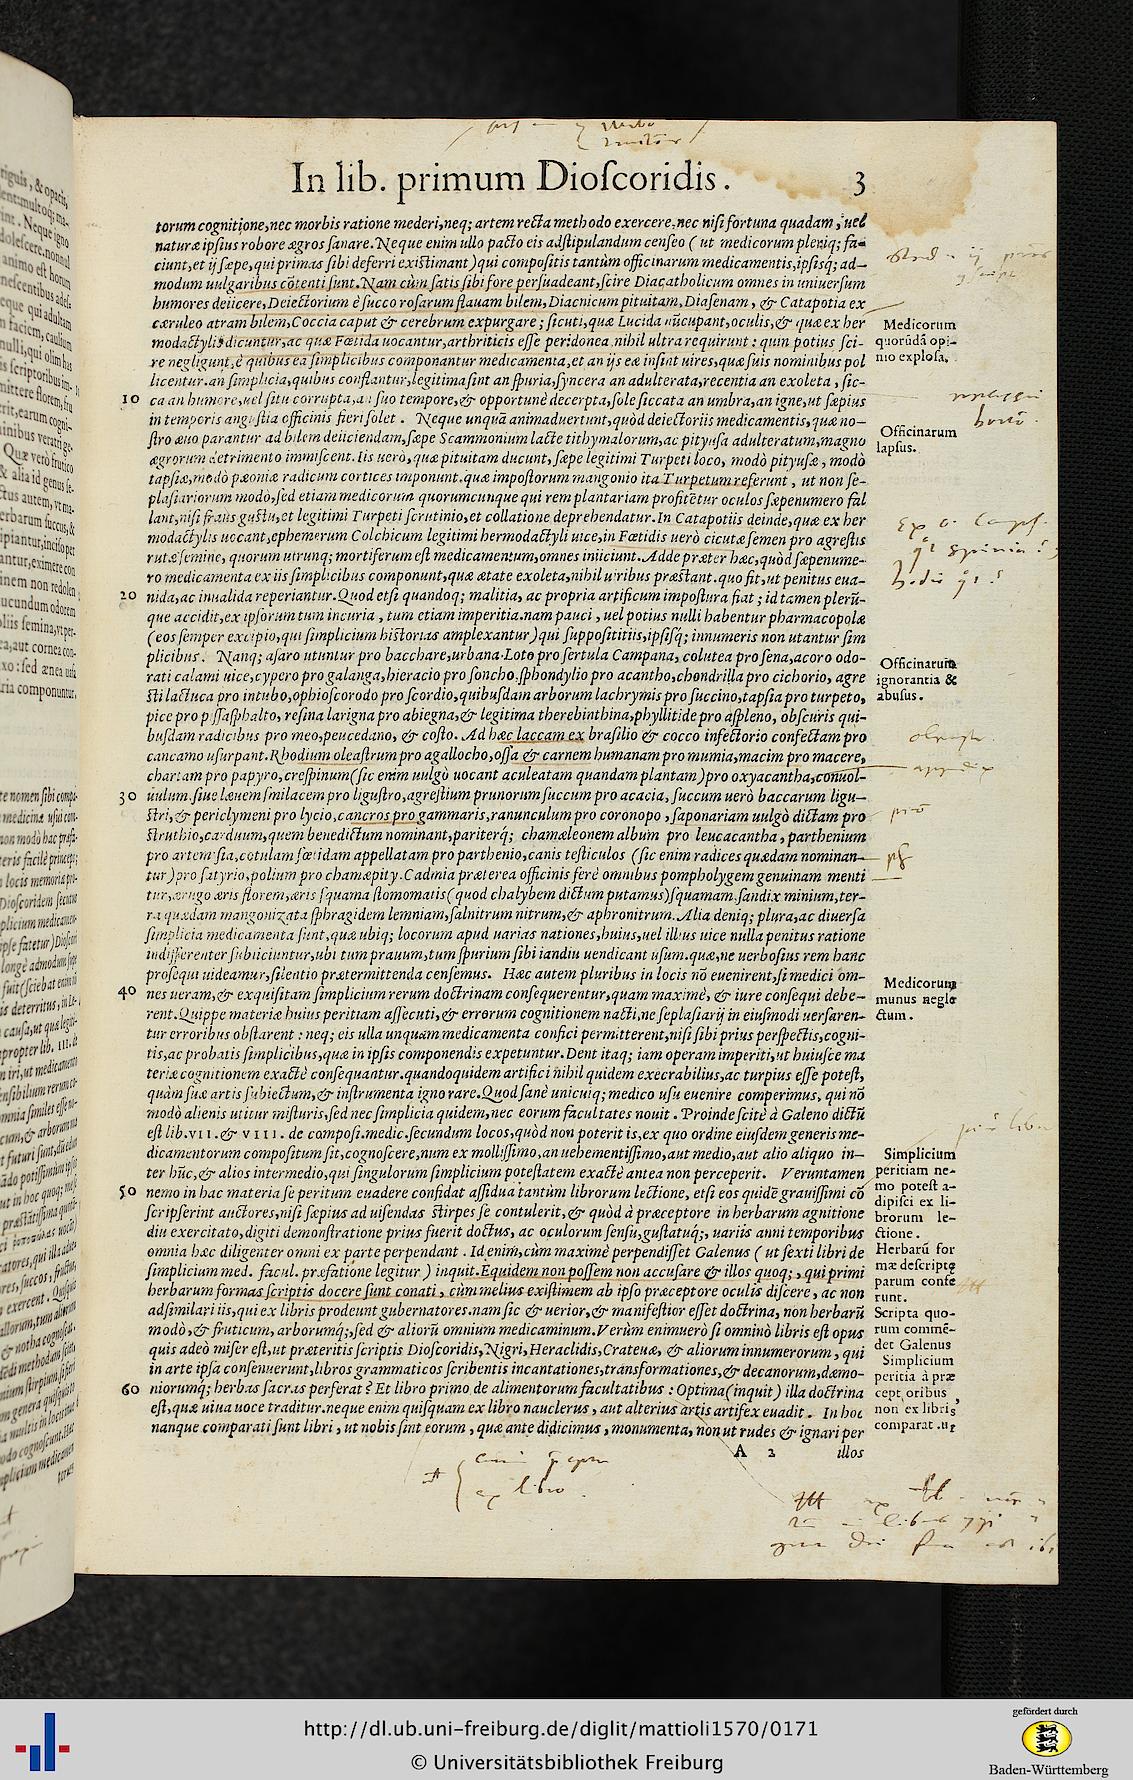 In lib. primum Dioſcoridis. 3
torum cognitione, nec morbis ratione mederi, neq; artem recta methodo exercere, nec niſi fortuna quadam, uel
naturæ ipſius robore ægros ſanare. Neque enim ullo pacto eis adſtipulandum cenſeo (ut medicorum pleriq; fa-
ciunt, et ij ſæpe, qui primas ſibi deferri exiſtimant) qui compoſitis tantùm officinarum medicamentis, ipſisq; ad-
modum uulgaribus cōtenti ſunt. Nam cùm ſatis ſibi fore perſuadeant, ſcire Diacatholicum omnes in uniuerſum
humores deiicere, Deiectorium è ſucco roſarum flauam bilem, Diacnicum pituitam, Diaſenam, & Catapotia ex
cæruleo atram bilem, Coccia caput & cerebrum expurgare; ſicuti, quæ Lucida nūcupant, oculis, & quæ ex her
modactylis dicuntur, ac quæ Fœtida uocantur, arthriticis eſſe peridonea, nihil ultra requirunt: quin potius ſci-
re negligunt, è quibus ea ſimplicibus componantur medicamenta, et an ijs eæ inſint uires, quæ ſuis nominibus pol
licentur. an ſimplicia, quibus conſtantur, legitima ſint an ſpuria, ſyncera an adulterata, recentia an exoleta, ſic-
10 ca an humore, uel ſitu corrupta, an ſuo tempore, & opportunè decerpta, ſole ſiccata an umbra, an igne, ut ſæpius
in temporis anguſtia officinis fieri ſolet. Neque unquā animaduertunt, quòd deiectoriis medicamentis, quæ no-
ſtro æuo parantur ad bilem deiiciendam, ſæpe Scammonium lacte tithymalorum, ac pityuſa adulteratum, magno
ægrorum detrimento immiſcent. Iis uerò, quæ pituitam ducunt, ſæpe legitimi Turpeti loco, modò pityuſæ, modò
tapſiæ, modò pæoniæ radicum cortices imponunt. quæ impoſtorum mangonio ita Turpetum referunt, ut non ſe-
plaſiariorum modò, ſed etiam medicorum quorumcunque qui rem plantariam profitētur oculos ſæpenumero fal
lant, niſi fraus guſtu, et legitimi Turpeti ſcrutinio, et collatione deprehendatur. In Catapotiis deinde, quæ ex her
modactylis uocant, ephemerum Colchicum legitimi hermodactyli uice, in Fœtidis uerò cicutæ ſemen pro agreſtis
rutæ ſemine, quorum utrunq; mortiferum eſt medicamentum, omnes iniiciunt. Adde præter hæc, quòd ſæpenume-
ro medicamenta ex iis ſimplicibus componunt, quæ ætate exoleta, nihil uiribus præſtant. quo fit, ut penitus eua-
20 nida, ac inualida reperiantur. Quod etſi quandoq; malitia, ac propria artificum impoſtura fiat; id tamen plerū-
que accidit, ex ipſorum tum incuria, tum etiam imperitia. nam pauci, uel potius nulli habentur pharmacopolæ
(eos ſemper excipio, qui ſimplicium hiſtorias amplexantur) qui ſuppoſititiis, ipſiſq; innumeris non utantur ſim
plicibus. Nanq; aſaro utuntur pro bacchare, urbana Loto pro ſertula Campana, colutea pro ſena, acoro odo-
rati calami uice, cypero pro galanga, hieracio pro ſoncho, ſphondylio pro acantho, chondrilla pro cichorio, agre
ſti lactuca pro intubo, ophioſcorodo pro ſcordio, quibuſdam arborum lachrymis pro ſuccino, tapſia pro turpeto,
pice pro piſſaſphalto, reſina larigna pro abiegna, & legitima therebinthina, phyllitide pro aſpleno, obſcuris qui-
buſdam radicibus pro meo, peucedano, & coſto. Ad hæc laccam ex braſilio & cocco infectorio confectam pro
cancamo uſurpant. Rhodium oleaſtrum pro agallocho, oſſa & carnem humanam pro mumia, macim pro macere,
chartam pro papyro, creſpinum (ſic enim uulgò uocant aculeatam quandam plantam) pro oxyacantha, conuol-
30 uulum. ſiue læuem ſmilacem pro liguſtro, agreſtium prunorum ſuccum pro acacia, ſuccum uerò baccarum ligu-
ſtri, & periclymeni pro lycio, cancros pro gammaris, ranunculum pro coronopo, ſaponariam uulgò dictam pro
ſtruthio, carduum, quem benedictum nominant, pariterq; chamæleonem album pro leucacantha, parthenium
pro artemiſia, cotulam fœtidam appellatam pro parthenio, canis teſticulos (ſic enim radices quædam nominan-
tur) pro ſatyrio, polium pro chamæpity. Cadmia præterea officinis ferè omnibus pompholygem genuinam menti
tur, ærugo æris florem, æris ſquama ſtomomatis (quod chalybem dictum putamus) ſquamam. ſandix minium, ter-
ra quædam mangonizata ſphragidem lemniam, ſalnitrum nitrum, & aphronitrum. Alia deniq; plura, ac diuerſa
ſimplicia medicamenta ſunt, quæ ubiq; locorum apud uarias nationes, huius, uel illius uice nulla penitus ratione
indifferenter ſubiiciuntur, ubi tum prauum, tum ſpurium ſibi iandiu uendicant uſum. quæ, ne uerboſius rem hanc
proſequi uideamur, ſilentio prætermittenda cenſemus. Hæc autem pluribus in locis nō euenirent, ſi medici om-
40 nes ueram, & exquiſitam ſimplicium rerum doctrinam conſequerentur, quam maximè, & iure conſequi debe-
rent. Quippe materiæ huius peritiam aſſecuti, & errorum cognitionem nacti, ne ſeplaſiarij in eiuſmodi uerſaren-
tur erroribus obſtarent: neq; eis ulla unquam medicamenta confici permitterent, niſi ſibi prius perſpectis, cogni-
tis, ac probatis ſimplicibus, quæ in ipſis componendis expetuntur. Dent itaq; iam operam imperiti, ut huiuſce ma
teriæ cognitionem exactè conſequantur. quandoquidem artifici nihil quidem execrabilius, ac turpius eſſe poteſt,
quàm ſuæ artis ſubiectum, & inſtrumenta ignorare. Quod ſanè unicuiq; medico uſu euenire comperimus, qui nō
modò alienis utitur miſturis, ſed nec ſimplicia quidem, nec eorum facultates nouit. Proinde ſcitè à Galeno dictū
eſt lib. VII. & VIII. de compoſi. medic. ſecundum locos, quòd non poterit is, ex quo ordine eiuſdem generis me-
dicamentorum compoſitum ſit, cognoſcere, num ex molliſſimo, an uehementiſſimo, aut medio, aut alio aliquo in-
ter hūc, & alios intermedio, qui ſingulorum ſimplicium poteſtatem exactè antea non perceperit. Veruntamen
50 nemo in hac materia ſe peritum euadere confidat aſſidua tantùm librorum lectione, etſi eos quidē grauiſſimi cō
ſcripſerint auctores, niſi ſæpius ad uiſendas ſtirpes ſe contulerit, & quòd à præceptore in herbarum agnitione
diu exercitato, digiti demonſtratione prius fuerit doctus, ac oculorum ſenſu, guſtatuq;, uariis anni temporibus
omnia hæc diligenter omni ex parte perpendant. Id enim, cùm maximè perpendiſſet Galenus (ut ſexti libri de
ſimplicium med. facul. præfatione legitur) inquit. Equidem non poſſem non accuſare & illos quoq;, qui primi
herbarum formas ſcriptis docere ſunt conati, cùm melius exiſtimem ab ipſo præceptore oculis diſcere, ac non
adſimilari iis, qui ex libris prodeunt gubernatores. nam ſic & uerior, & manifeſtior eſſet doctrina, non herbarū
modò, & fruticum, arborumq;, ſed & aliorū omnium medicaminum. Verùm enimuerò ſi omninò libris eſt opus
quis adeò miſer eſt, ut præteritis ſcriptis Dioſcoridis, Nigri, Heraclidis, Crateuæ, & aliorum innumerorum, qui
in arte ipſa conſenuerunt, libros grammaticos ſcribentis incantationes, transformationes, & decanorum, dæmo-
60 niorumq; herbas ſacras perferat? Et libro primo de alimentorum facultatibus: Optima (inquit) illa doctrina
eſt, quæ uiua uoce traditur. neque enim quiſquam ex libro nauclerus, aut alterius artis artifex euadit. In hoc
nanque comparati ſunt libri, ut nobis ſint eorum, quæ ante didicimus, monumenta, non ut rudes & ignari per
A 2 illos
Medicorum
quorūdā opi-
nio exploſa.
Officinarum
lapſus.
Officinarum
ignorantia &
abuſus.
Medicorum
munus negle
ctum.
Simplicium
peritiam ne-
mo poteſt a-
dipiſci ex li-
brorum le-
ctione.
Herbarū for
mæ deſcriptæ
parum confe
runt.
Scripta quo-
rum commē-
det Galenus
Simplicium
peritia à præ
ceptoribus,
non ex libris
ex libro
http://dl.ub.uni-freiburg.de/diglit/mattioli1570/0171
© Universitätsbibliothek Freiburg
gefördert durch
Baden-Württemberg